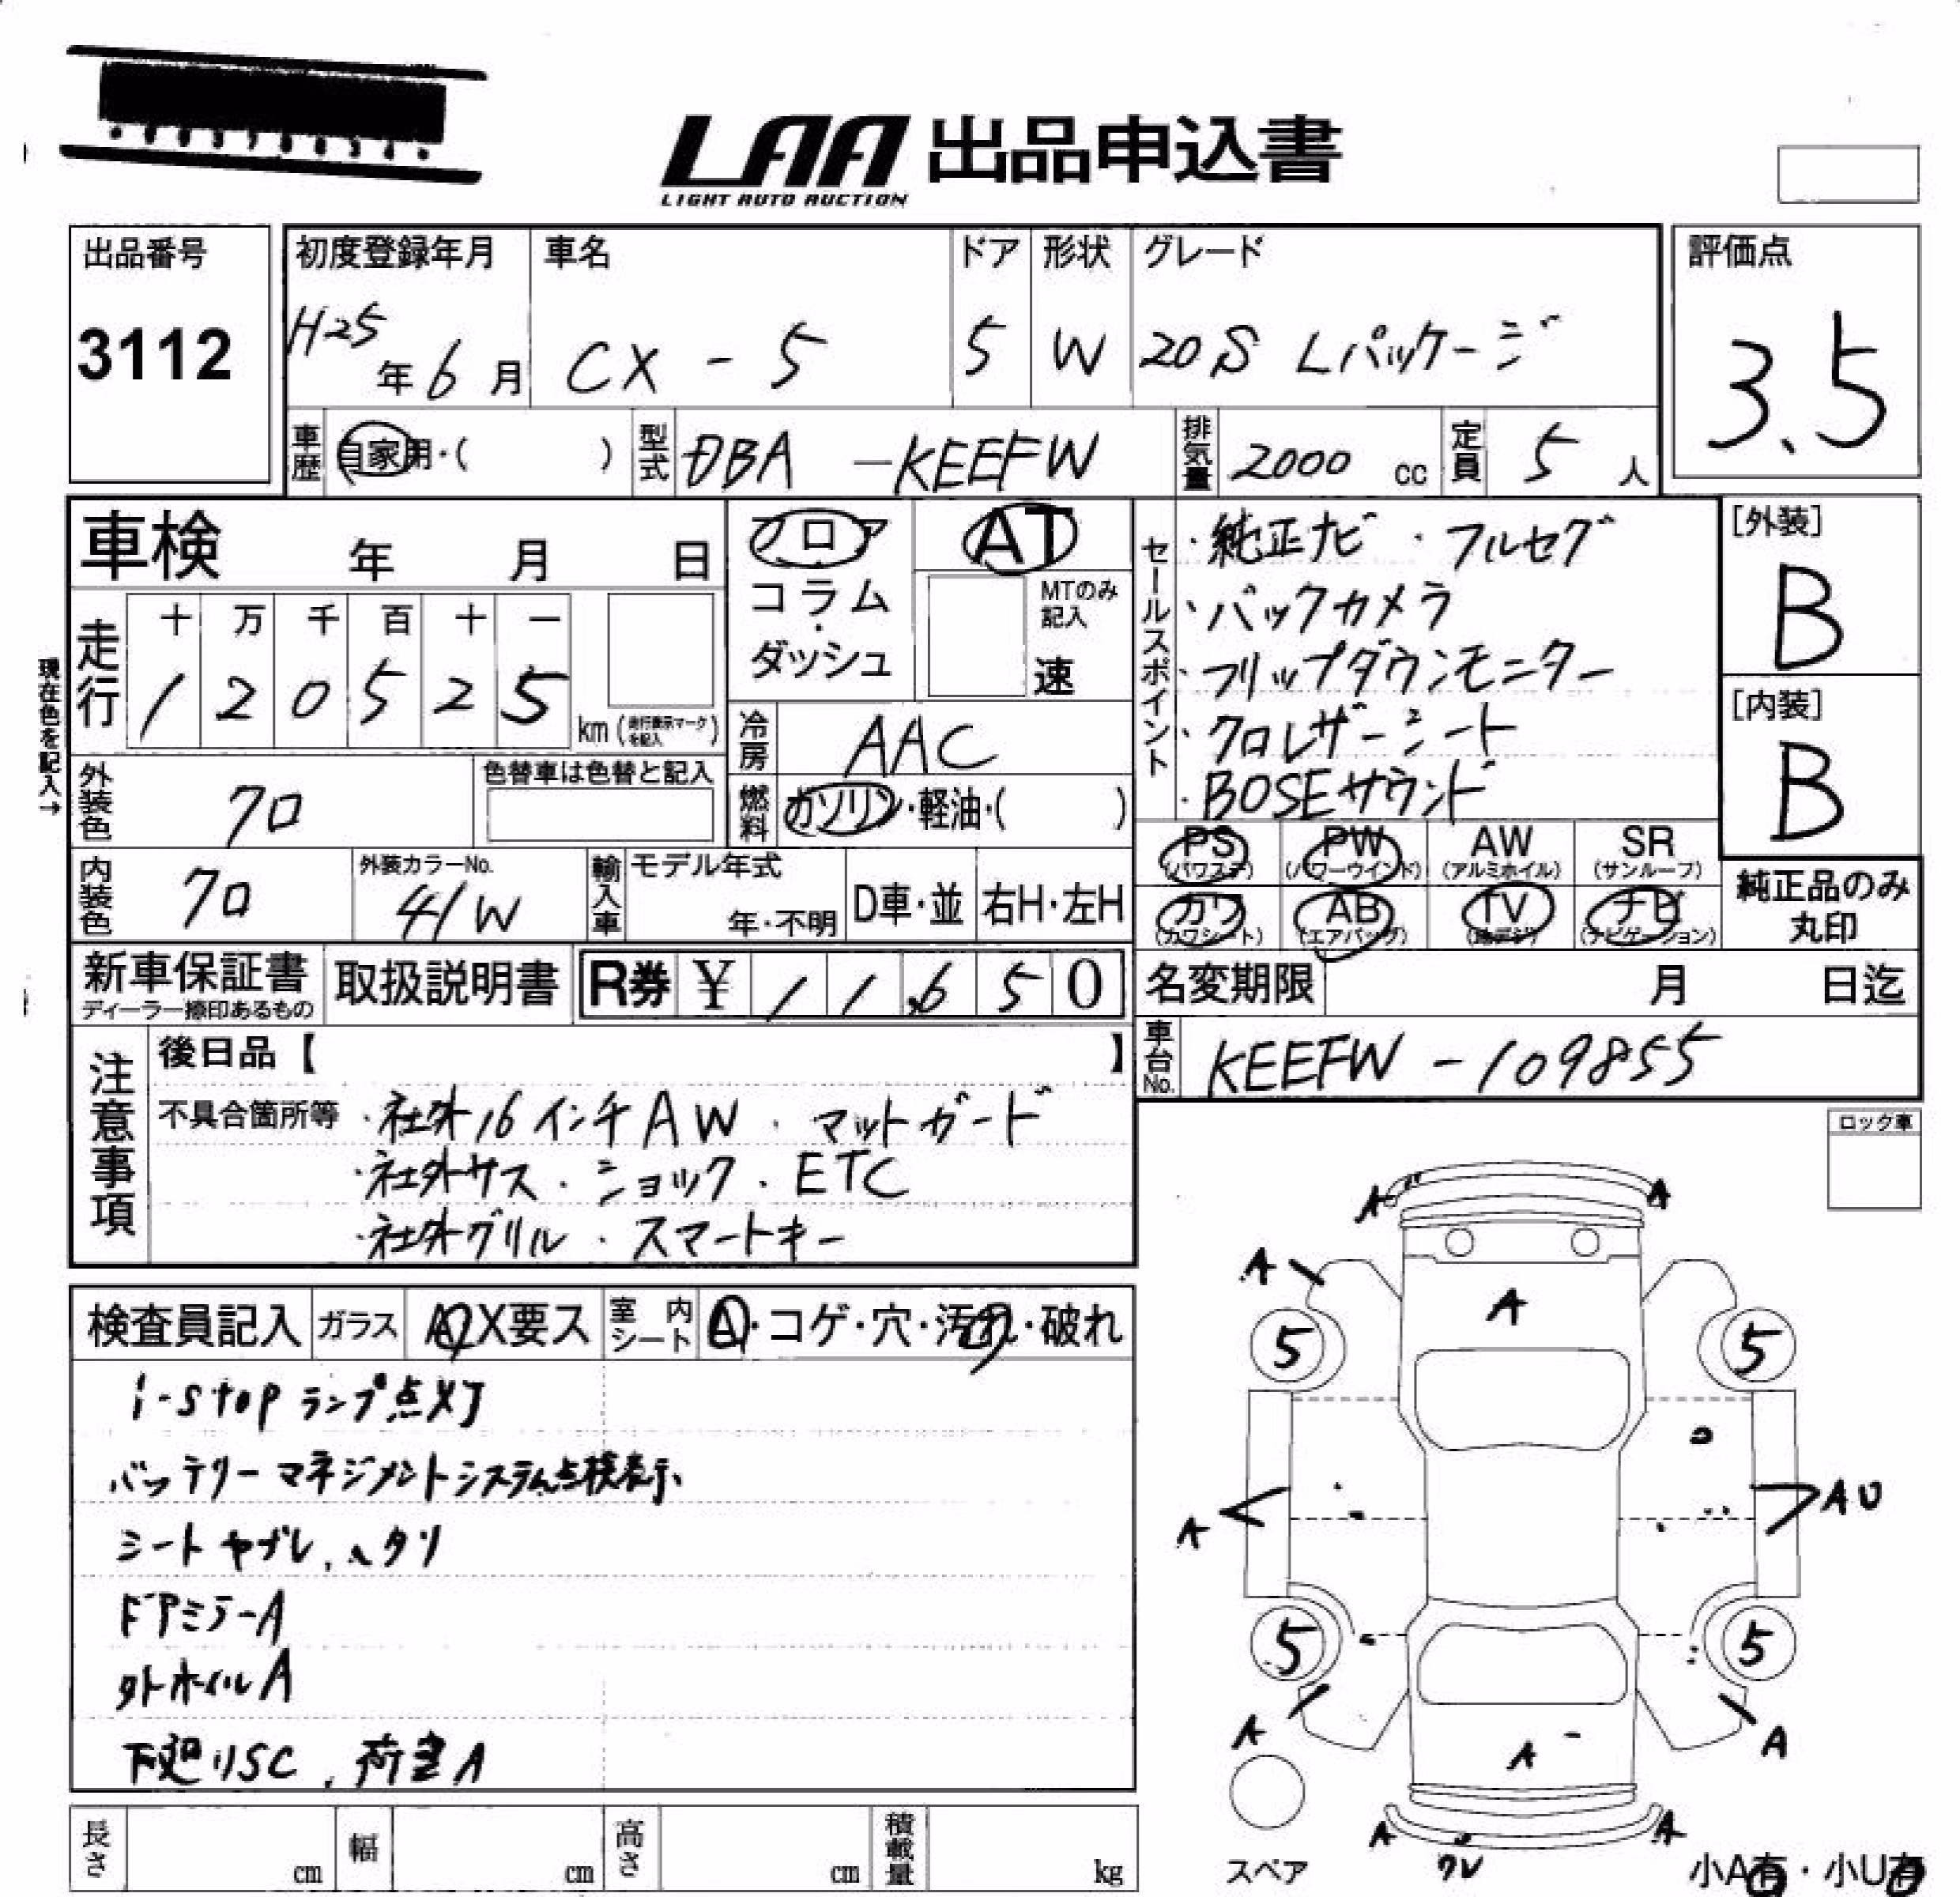 LAA 出品申込書
LIGHT AUTO AUCTION
出品番号
3112
初度登録年月
H25年6月
車名
CX-5
ドア
5
形状
W
グレード
20S Lパッケージ
評価点
3.5
車歴 自家用・( )
型式 DBA-KEEFW
排気量 2000 cc
定員 5人
車検 年 月 日
走行
十 万 千 百 十 一
1 2 0 5 2 5
km(走行表示マークを記入)
現在色を記入→
フロア
コラム
・
ダッシュ
AT
MTのみ記入
速
冷房 AAC
燃料 ガソリン・軽油・( )
セールスポイント
・純正ナビ ・フルセグ
・バックカメラ
・フリップダウンモニター
・クロレザーシート
・BOSEサウンド
[外装]
B
[内装]
B
外装色 クロ
色替車は色替と記入
内装色 クロ
外装カラーNo.
41W
輸入車 モデル年式
年・不明
D車・並 右H・左H
PS (パワステ) PW (パワーウインド) AW (アルミホイル) SR (サンルーフ)
カワ (カワシート) AB (エアバッグ) TV (地デジ) ナビ (ナビゲーション)
純正品のみ
丸印
新車保証書
ディーラー捺印あるもの
取扱説明書
R券 ¥ 11,650
名変期限 月 日迄
車台No. KEEFW-109855
注意事項
後日品【 】
不具合箇所等 ・社外16インチAW ・マットガード
・社外サス・ショック・ETC
・社外グリル ・スマートキー
ロック車
検査員記入 ガラス A・X要ス 室内シート A・コゲ・穴・汚れ・破れ
i-stopランプ点灯
バッテリーマネジメントシステム点検表示
シートヤブレ、ヘタリ
ドアミラーA
外ホイルA
下廻りSC、荷室A
A A
A
A
5 5
A AU
5 5
A A
A
A A
クレ
スペア
小A有・小U有
長さ cm
幅 cm
高さ cm
積載量 kg